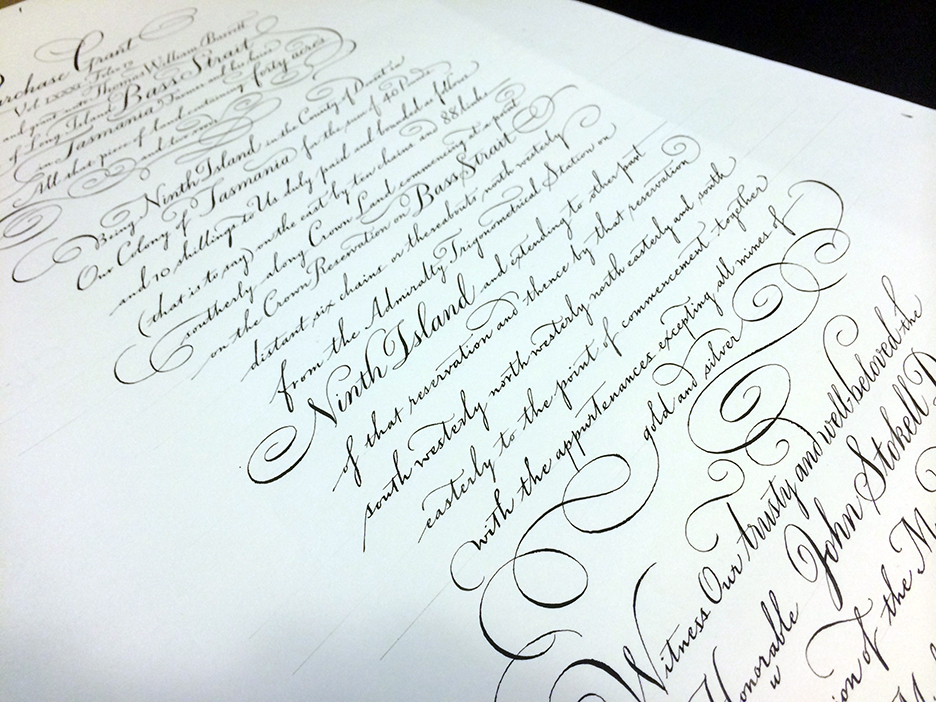 Purchase Grant
Vol LXXXI Folio 12
and grant unto Thomas William Barrett
of Long Island Bass Strait
in Tasmania Farmer and his heirs
All that piece of land containing forty acres
and two roods
Being Ninth Island in the County of Dorset in
Our Colony of Tasmania for the sum of 40 Pounds
and 10 shillings to Us duly paid and bounded as follows
(that is to say) on the east by ten chains and 88 links
southerly along Crown Land commencing at a point
on the Crown Reservation on Bass Strait
distant six chains or thereabouts north westerly
from the Admiralty Trigonometrical Station on
Ninth Island and extending to other point
of that reservation and thence by that reservation
south westerly north westerly north easterly and south
easterly to the point of commencement together
with the appurtenances excepting all mines of
gold and silver
Witness Our trusty and well-beloved the
Honorable John Stokell
of the